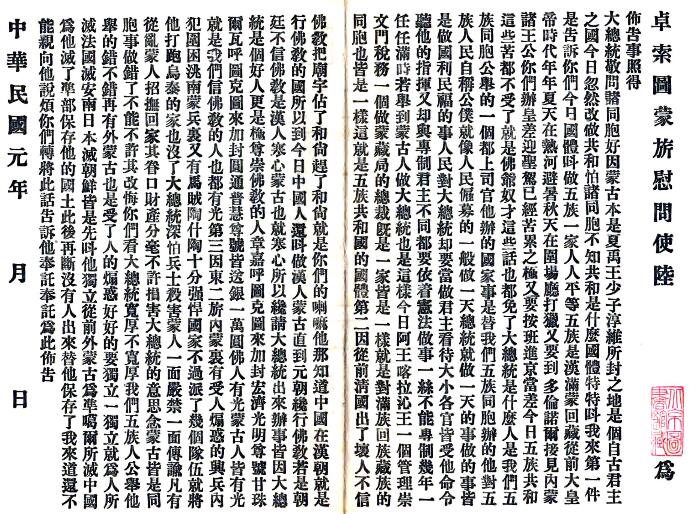 卓索圖蒙旂慰問使陸　爲
佈告事照得
大總統敬問諸同胞好因蒙古本是夏禹王少子淳維所封之地是個自古君主
之國今日忽然改做共和怕諸同胞不知共和是什麽國體特特呌我來第一件
是告訴你們今日國體呌做五族一家人人平等五族是漢滿蒙回藏從前大皇
帝時代年年夏天在熱河避暑秋天在圍場廳打獵又要到多倫諾爾接見內蒙
諸王公你們辦皇差迎聖駕已經苦累之極又要按班進京當差今日五族共和
這些苦都不受了就是佛爺奴才這些話也都免了大總統是什麽人是我們五
族同胞公舉的一個都上司官他辦的國家事是替我們五族同胞辦的他對五
族人民自稱公僕就像人民僱募的一般做一天總統就做一天的事做的事皆
是做國利民福的事人民對大總統却要當做君主看待大小各官皆受他命令
聽他的指揮又却與專制君主不同都要依着憲法做事一絲不能專制幾年一
任任滿時若舉到蒙古人做大總統也是這樣今日阿王喀拉沁王一個管理崇
文門稅務一個做蒙藏局的總裁旣是一家皆是一樣就是對滿族回族藏族的
同胞也皆是一樣這就是五族共和國的國體第二因從前清國出了壞人不信
佛敎把廟宇佔了和尚趕了和尚就是你們的喇嘛他那知道中國在漢朝就是
行佛敎的國所以到今日中國人還呌做漢人蒙古直到元朝纔行佛敎若是朝
廷不信佛敎是漢人寒心蒙古也就寒心所以纔請大總統出來辦事皆因大總
統是個好人更是極尊崇佛敎的人章嘉呼圖克圖來加封宏濟光明尊號甘珠
爾瓦呼圖克圖來加封圓通普慧尊號皆送銀一萬圓佛人有光蒙古人皆有光
就是我們信佛敎的人也都有光第三因東二旂內蒙裏有受人煽惑的興兵內
犯圍困洮南蒙兵裏又有馬賊陶什陶十分强悍國家不過派了幾個隊伍就將
他打跑烏泰的家也沒了大總統深怕兵士殺害蒙人一面嚴禁一面傳諭凡有
從亂蒙人招撫回家其眷口財產分毫不許損害大總統的意思念蒙古皆是同
胞事做錯了不能不許其改悔你們看大總統寬厚不寬厚我們五族人公舉他
舉的錯不錯再有外蒙古也是受了人的煽惑好好的要獨立一獨立就爲人所
滅法國滅安南日本滅朝鮮皆是先呌他獨立從前外蒙古爲準噶爾所滅中國
爲他滅了準部保存他的國土此後再斷沒有人出來替他保存了我來道遠不
能親向他說煩你們轉將此話告訴他奉託奉託爲此佈告
中華民國元年　月　日